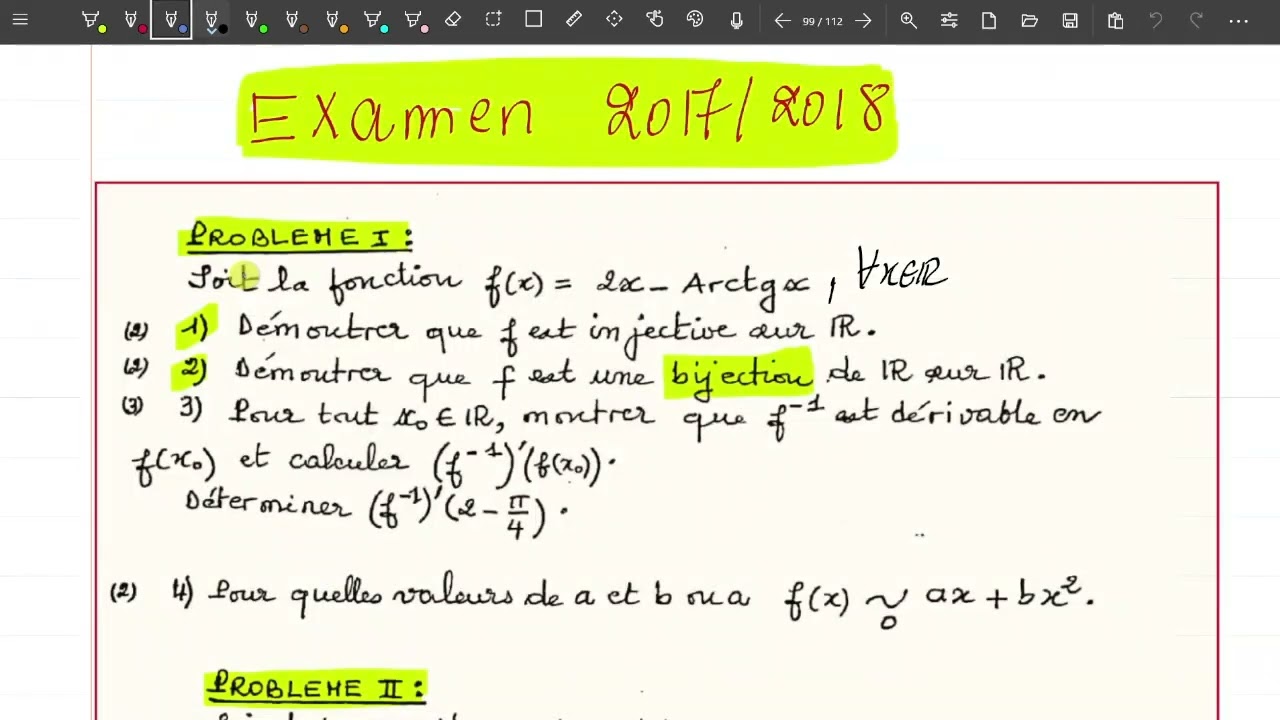 99 / 112
Examen 2017/2018
PROBLEME I :
Soit la fonction f(x) = 2x - Arctg x , ∀x∈ℝ
(2) 1) Démontrer que f est injective sur ℝ.
(2) 2) Démontrer que f est une bijection de ℝ sur ℝ.
(3) 3) Pour tout x₀ ∈ ℝ, montrer que f⁻¹ est dérivable en
f(x₀) et calculer (f⁻¹)'(f(x₀)).
Déterminer (f⁻¹)'(2 - π/4).
(2) 4) Pour quelles valeurs de a et b on a f(x) ~₀ ax + bx².
PROBLEME II :